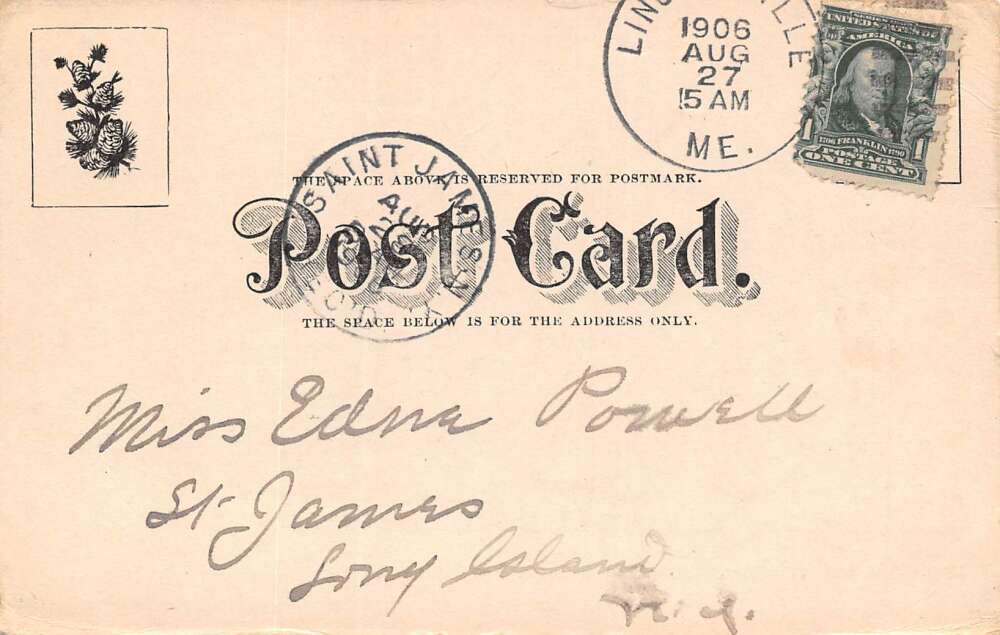 1906
AUG
27
5 AM
ME.
SERIES 1902
UNITED STATES OF
AMERICA
1706 FRANKLIN 1790
POSTAGE
1 ONE CENT 1
THE SPACE ABOVE IS RESERVED FOR POSTMARK.
SAINT JAMES N.Y.
AUG
REC'D.
Post Card.
THE SPACE BELOW IS FOR THE ADDRESS ONLY.
Miss Edna Powell
St. James
Long Island
N.Y.